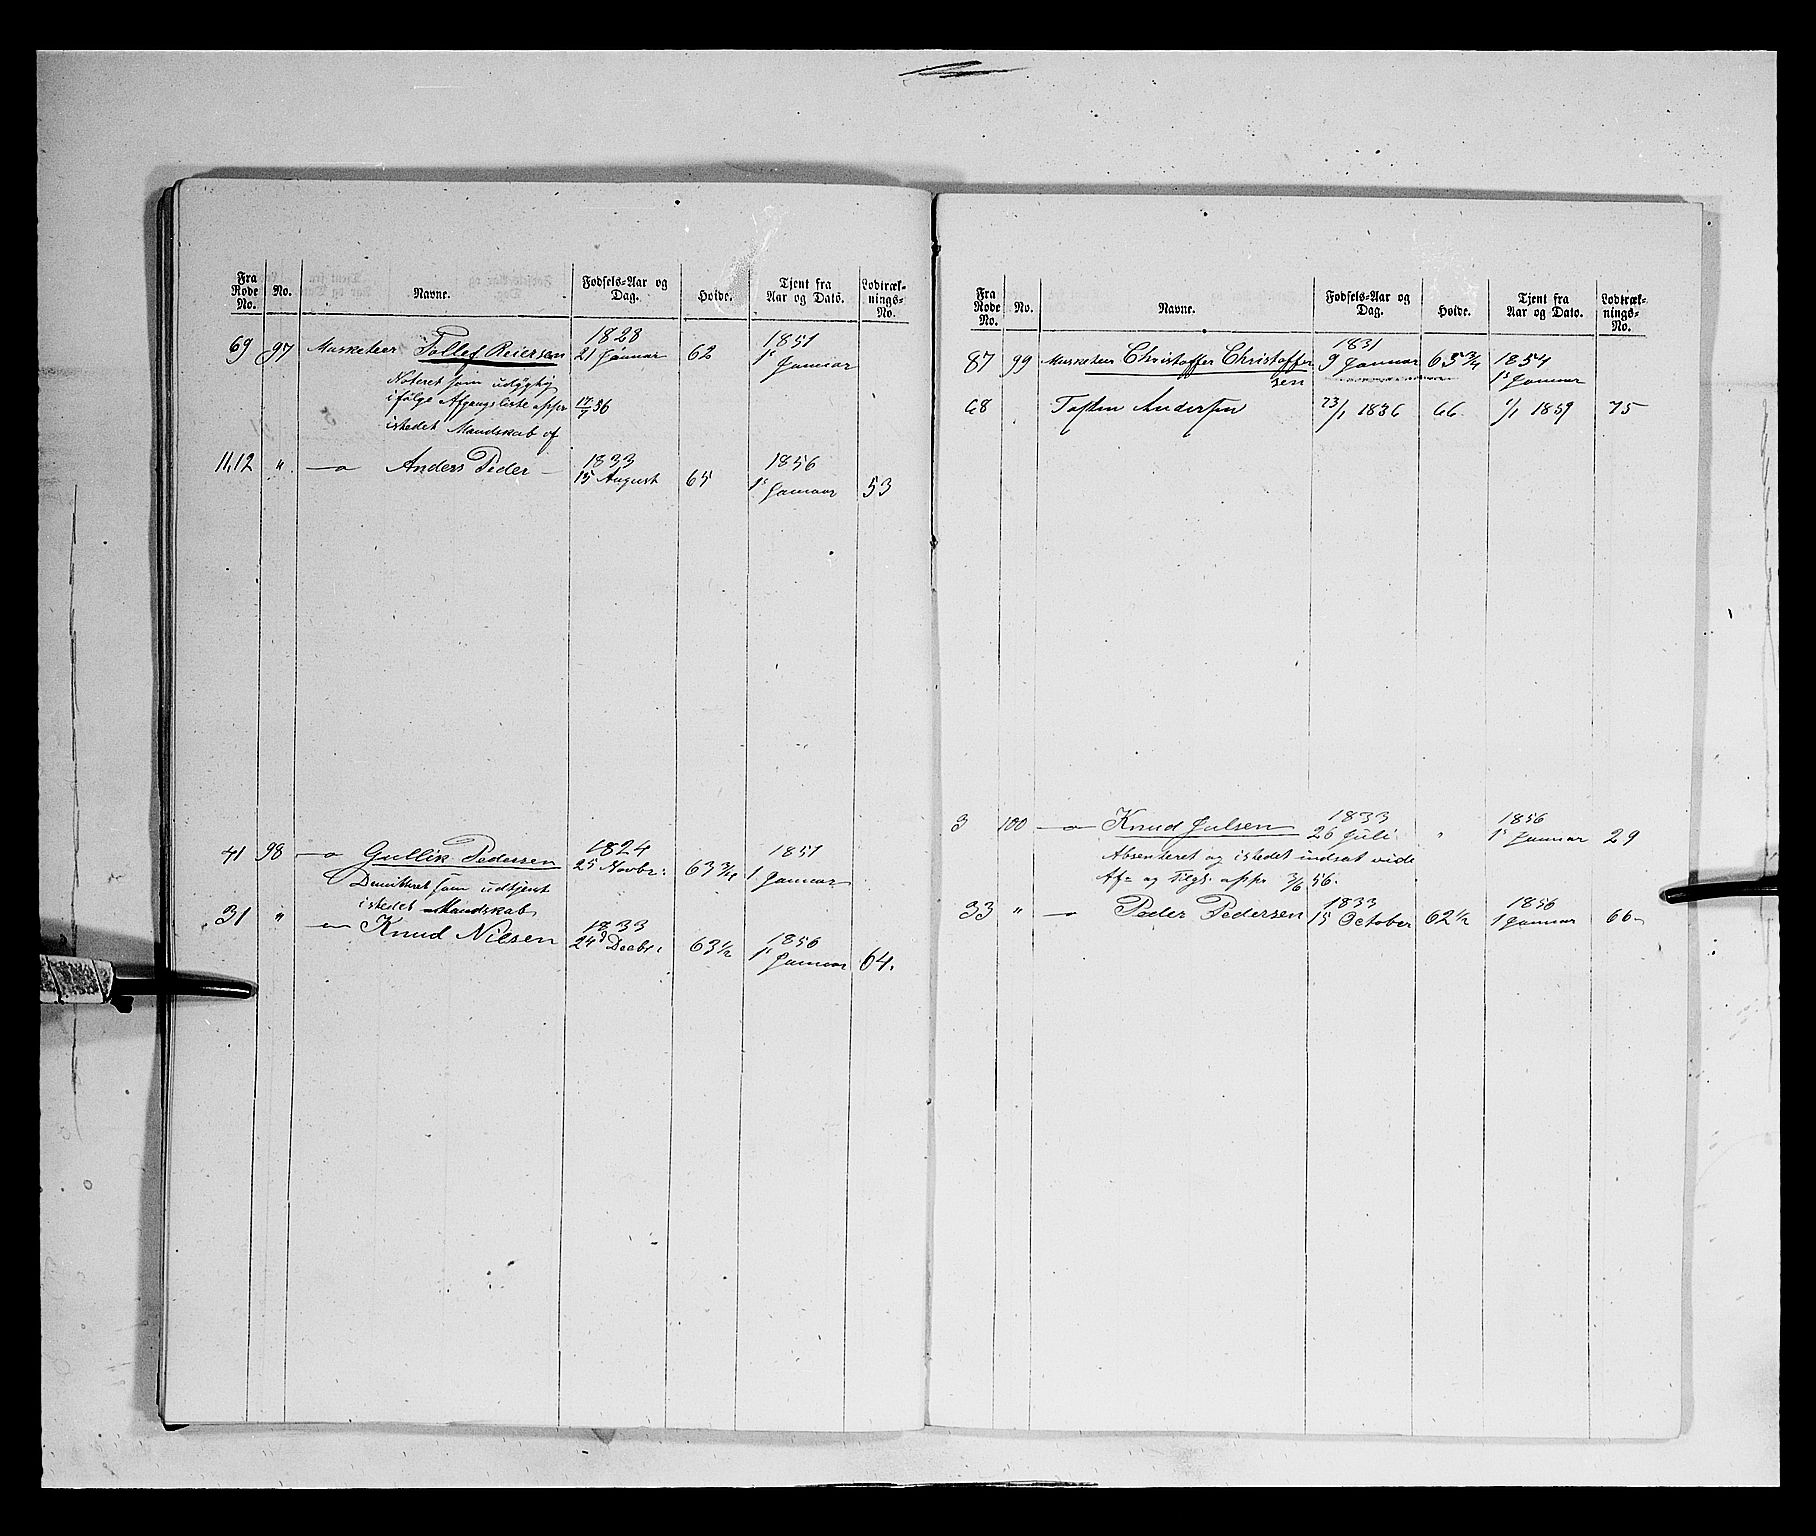 Fra Rode No. No. Navne. Fødsels-Aar og Dag. Høide. Tjent fra Aar og Dato. Lodtræknings-No.
69 97 Musketeer Tollef Reiersen 1828 21 Januar 62 1851 1s Januar
Noteret som udygtig
ifølge Afgangsliste appr 17/7 56
istedet Mandskab af
11,12 " —o Anders Peder — 1833 15 August 65 1856 1s Januar 53
41 98 —o Gullik Pedersen 1824 25 Novbr: 63 3/4 1851 1 Januar
Dimitteret som udtjent
istedet Mandskab
31 " —o Knud Nilsen 1833 24d Decbr: 63 1/2 1856 1s Januar 64.
Fra Rode No. No. Navne. Fødsels-Aar og Dag. Høide. Tjent fra Aar og Dato. Lodtræknings-No.
87 99 Musketeer Christoffer Christoffer
sen 1831 9 Januar 63 3/4 1854 1s Januar
68 Tosten Andersen 23/1 1836 66. 1/1 1859 75
3 100 —o Knud Julsen 1833 26 Juli " 1856 1s Januar 29
Absenteret og istedet indsat vide
Af= og Tilgs. appr 3/6 56.
33 " —o Peder Pedersen 1833 15 October 62 1/2 1856 1 Januar 66-